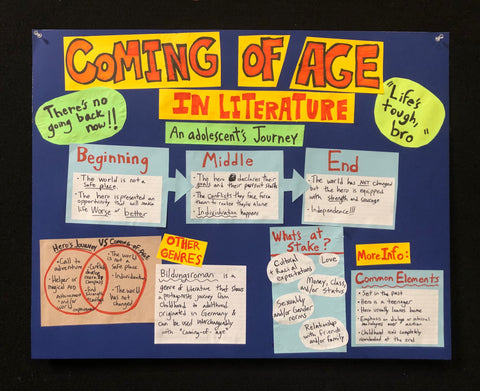 COMING OF AGE
IN LITERATURE
An adolescent's Journey
There's no
going back
now!!
"Life's
tough,
bro"
Beginning
- The world is not a
safe place.
- The hero is presented an
opportunity that will make
life Worse or better
Middle
- The hero declares their
goals and their pursuit
- The Conflicts they face force
them to realize they're alone
- Individuation happens
End
- The world has NOT changed
but the hero is equipped
with strength and courage
- Independence!!!
Hero's Journey VS Coming of Age
- Call to
adventure
- Helper or
magical aid
- The world
is not a
safe place
- Individuation
- The world
has not
changed
OTHER
GENRES
Bildungsroman is a
genre of literature that shows
a protagonists journey from
childhood to adulthood.
originated in Germany &
can be used interchangeably
with "coming-of-age"
Whats at
Stake?
Cultural
& Racial
expectations
Love
Money, class,
and/or status
Sexuality
and/or Gender
norms
Relationship
with friends
and/or family
More Info:
Common Elements
- Set in the past
- Hero is a teenager
- Hero usually leaves home
- Emphasis on dialogue or internal
monologues over action
- Childhood isn't completely
abandoned at the end